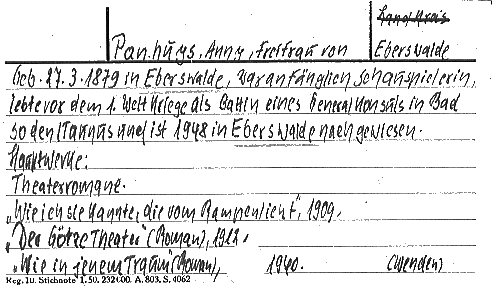 Landkreis
Panhuys, Anny, Freifrau von Eberswalde
Geb. 27.3.1879 in Eberswalde, war anfänglich Schauspielerin,
lebte vor dem 1. Weltkriege als Gattin eines Generalkonsuls in Bad
Soden/Taunus und ist 1948 in Eberswalde nachgewiesen.
Hauptwerke:
Theaterromane.
„Wie ich sie kannte, die vom Rampenlicht", 1909.
„Der Götze Theater" (Roman), 1922.
„Wie in jenem Traum" (Roman), 1940. (Wenden)
Reg. 10. Stichnote 1. 50. 2324 00. A. 803, S. 4062